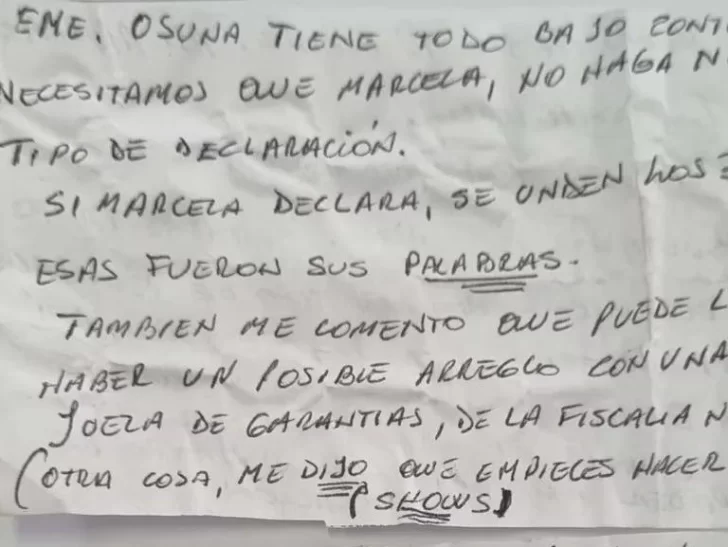 EME. OSUNA TIENE TODO BAJO CONT
NECESITAMOS QUE MARCELA, NO HAGA N
TIPO DE DECLARACIÓN.
SI MARCELA DECLARA, SE UNDEN LOS
ESAS FUERON SUS PALABRAS.
TAMBIEN ME COMENTO QUE PUEDE L
HABER UN POSIBLE ARREGLO CON UNA
JUEZA DE GARANTIAS, DE LA FISCALIA N
(OTRA COSA, ME DIJO QUE EMPIECES HACER
(SHOWS)